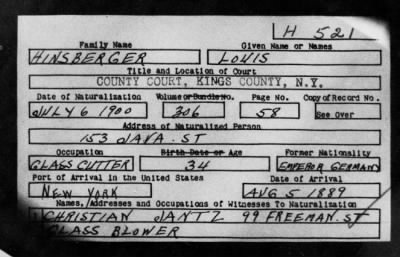 H 521
Family Name Given Name or Names
HINSBERGER LOUIS
Title and Location of Court
COUNTY COURT, KINGS COUNTY, N.Y.
Date of Naturalization Volume or Bundle No. Page No. Copy of Record No.
JULY 6 1900 306 58 See Over
Address of Naturalized Person
153 JAVA. ST
Occupation Birth Date or Age Former Nationality
GLASS CUTTER 34 EMPEROR GERMANY
Port of Arrival in the United States Date of Arrival
NEW YORK AUG 5 1889
Names, Addresses and Occupations of Witnesses To Naturalization
1 CHRISTIAN JANTZ 99 FREEMAN. ST
GLASS BLOWER